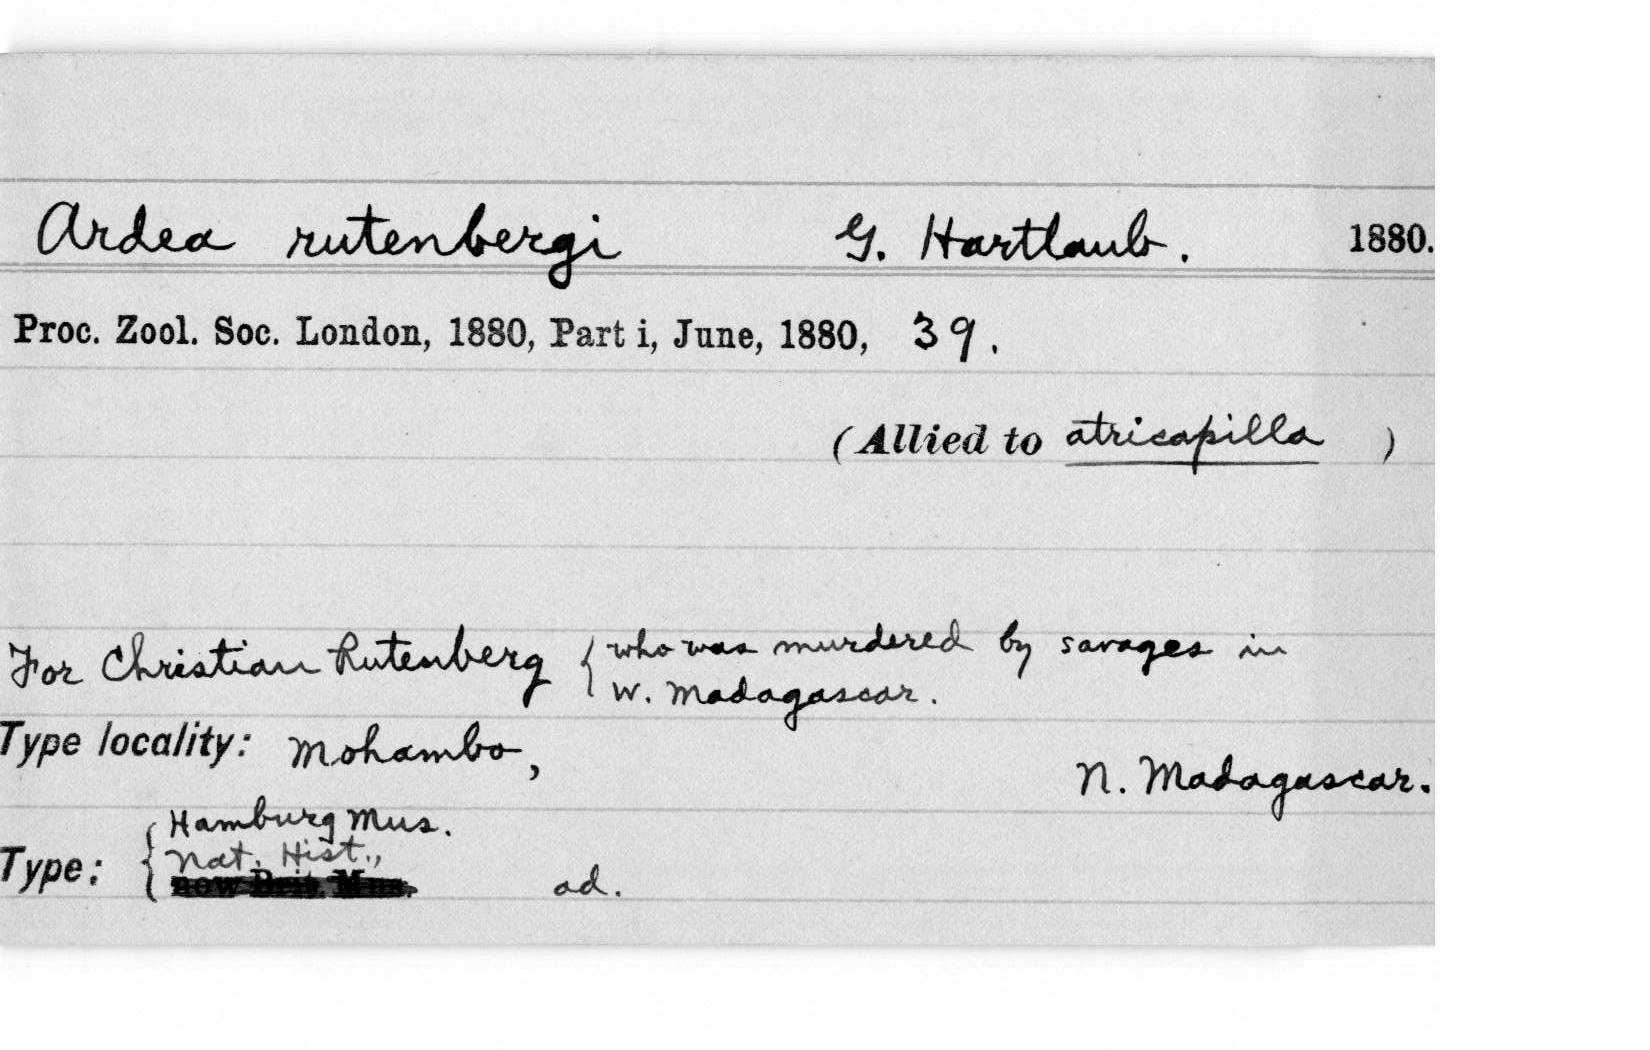 Ardea rutenbergi G. Hartlaub. 1880.
Proc. Zool. Soc. London, 1880, Part i, June, 1880, 39.
(Allied to atricapilla )
For Christian Rutenberg { who was murdered by savages in
W. Madagascar.
Type locality: Mohambo, N. Madagascar.
Hamburg Mus.
Nat. Hist.,
Type: { now Brit. Mus. ad.